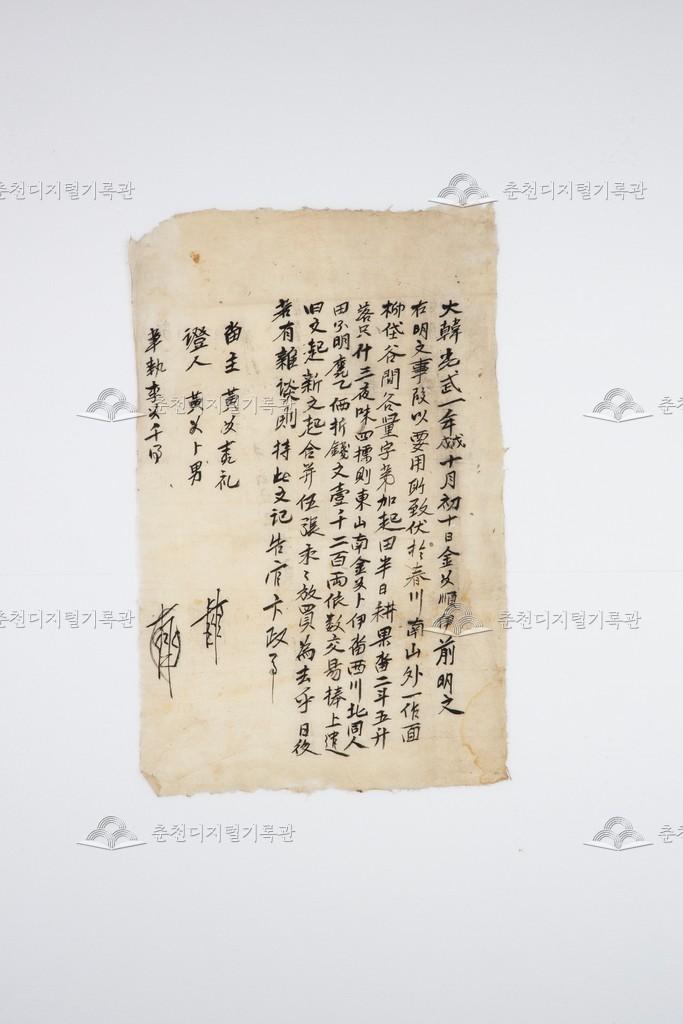 大韓光武二年戊戌十月初十日金召史順伊前明文
右明文事段以要用所致伏在春川南山外一作面
柳垈谷間谷量字第加起田半日耕果畓二斗五升
落只廿三夜味四標則東山南金召史卜伊畓西川北同人
田分明庫乙価折錢文壹千二百兩依数交易捧上遣
旧文起新文起合幷伍張永永放買為去乎日後
若有雜談則持此文記告官卞政事
畓主 黃召史 礼
證人 黃 卜男
筆執 李 千
춘천디지털기록관
춘천디지털기록관
춘천디지털기록관
춘천디지털기록관
춘천디지털기록관
춘천디지털기록관